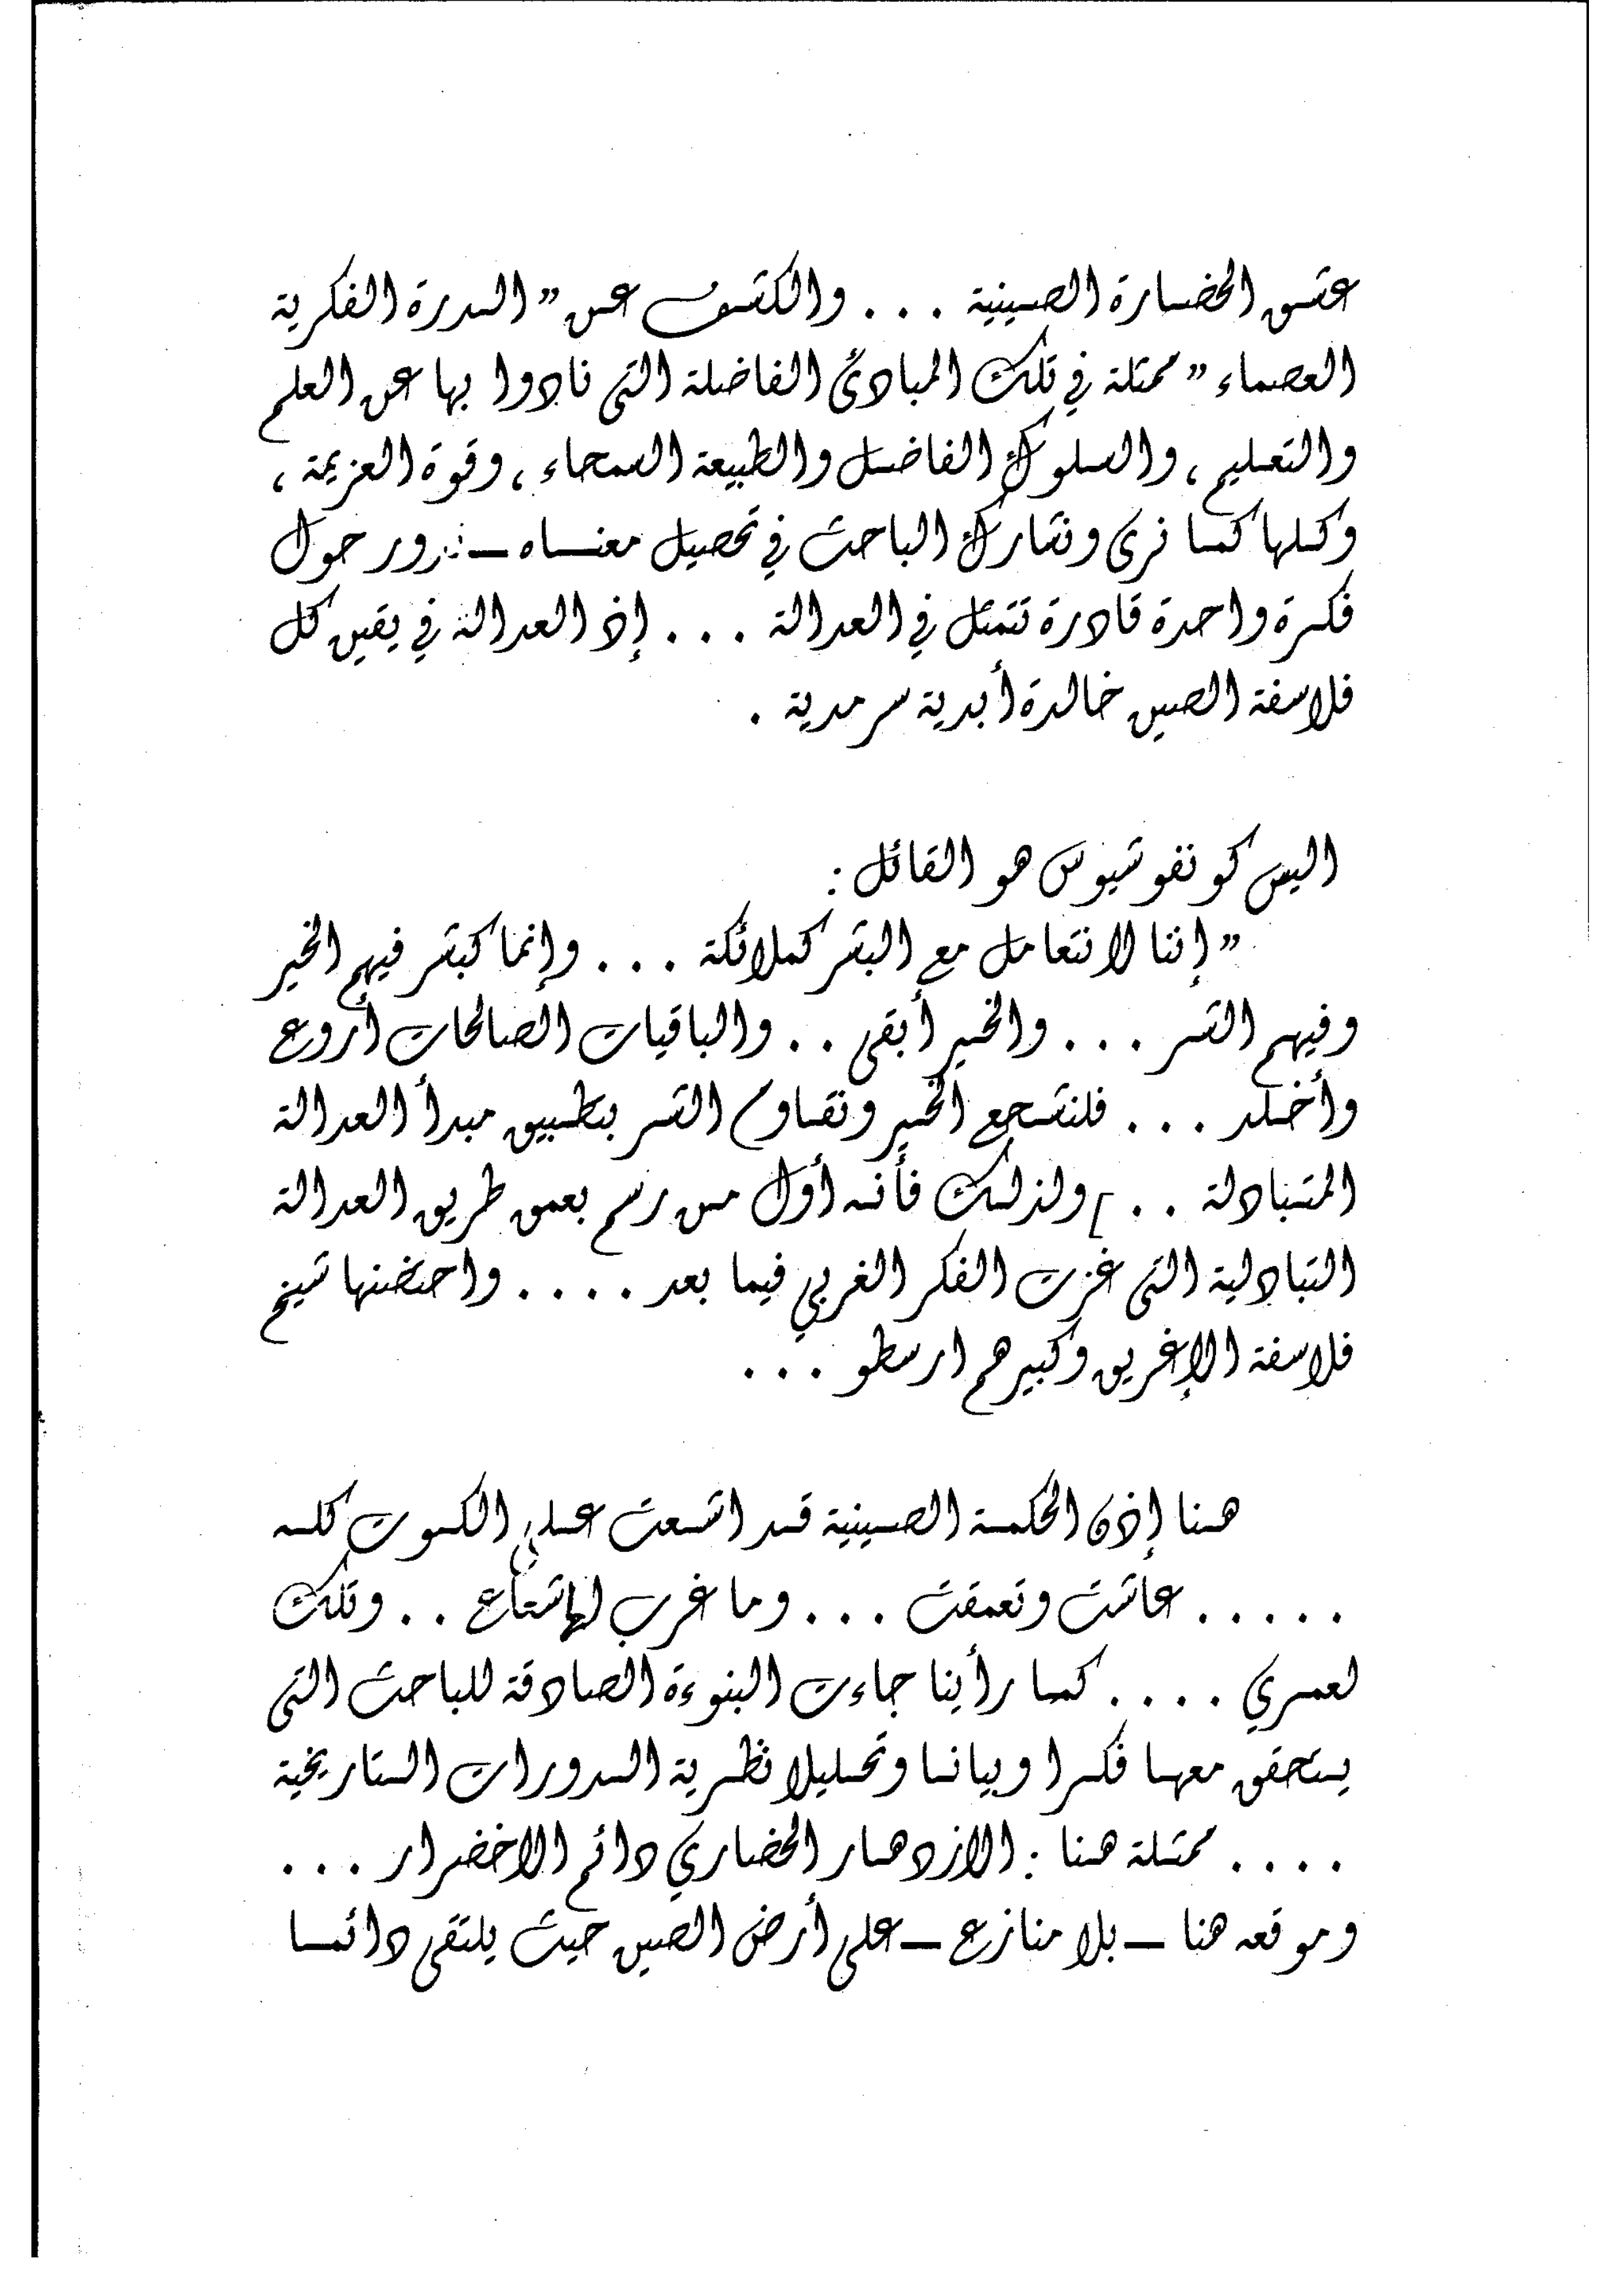 عتق الحضارة الصينية ... والكشف عن " الدرة الفكرية
العصماء " ممثلة في تلك المبادئ الفاضلة التى نادوا بها عن العلم
والتعليم ، والسلوك الفاضل والطبيعة السمحاء ، وقوة العزيمة ،
وكلها كما نرى ونشارك الباحث في تحصيل معناه – تدور حول
فكرة واحدة قادرة تتمثل في العدالة ... إذ العدالة في يقين كل
فلاسفة الصين خالدة أبدية سرمدية .
اليس كونفوشيوس هو القائل :
" إننا لا نتعامل مع البشر كملائكة ... وإنما كبشر فيهم الخير
وفيهم الشر ... والخير أبقى .. والباقيات الصالحات أروع
وأخلد ... فلنشجع الخير ونقاوم الشر بتطبيق مبدأ العدالة
المتبادلة .. ] ولذلك فأنه أول من رسم بعمق طريق العدالة
التبادلية التى غزت الفكر الغربي فيما بعد .... واحتضنها شيخ
فلاسفة الإغريق وكبيرهم ارسطو ...
هنا إذن الحكمة الصينية قد اشعت على الكون كله
..... عاشت وتعمقت ... وما غرب لها شعاع .. وتلك
لعمري .... كما رأينا جاءت البنوءة الصادقة للباحث التى
يتحقق معها فكرا وبيانا وتحليلا نظرية الدورات التاريخية
.... ممثلة هنا : الازدهار الحضاري دائم الاخضرار ...
وموقعه هنا – بلا منازع – على أرض الصين حيث يلتقى دائما